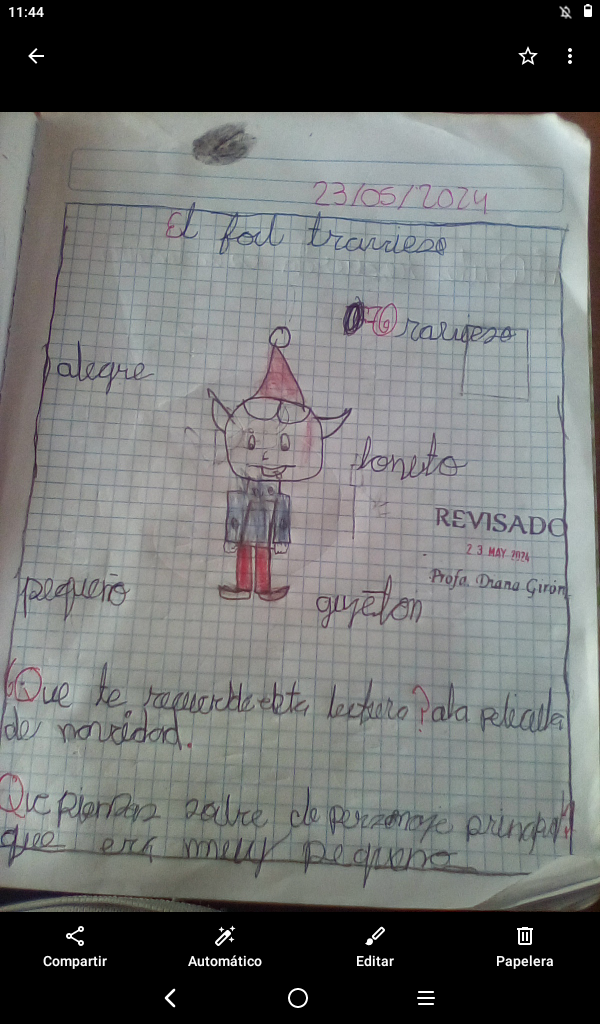 11:44
23/05/2024
El foil travieso
travieso
alegre
loneto
REVISADO
23 MAY 2024
Profa. Diana Girón
pequeño
gujeton
Que te recuerda esta lectura? ala pelicula
de navidad.
Que piensas sobre de perzonaje principal?
que era muy pequeno
Compartir
Automático
Editar
Papelera